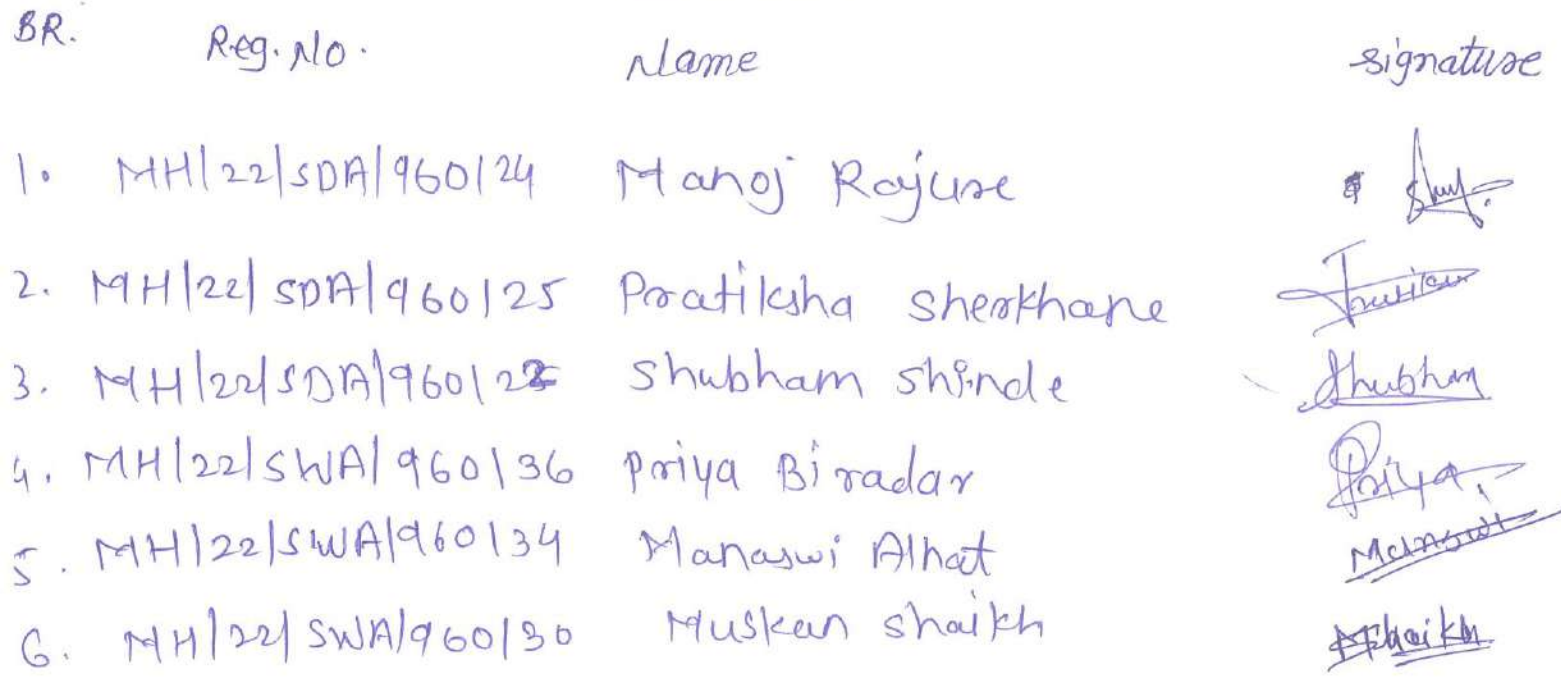 BR. Reg. No. Name signature
1. MH/22/SDA/960124 Manoj Rajure
2. MH/22/SDA/960125 Pratiksha sherkhane
3. MH/22/SDA/960122 Shubham shinde Shubham
4. MH/22/SWA/960136 Priya Biradar Priya
5. MH/22/SWA/960134 Manaswi Alhat Manaswi
6. MH/22/SWA/960130 Muskan shaikh MShaikh